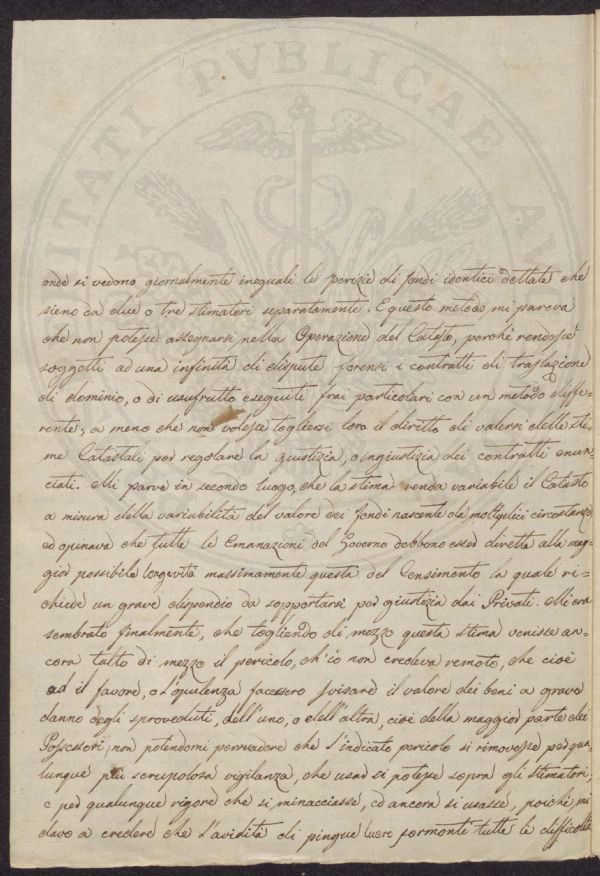 UTILITATI PVBLICAE
onde si vedono giornalmente ineguali le perizie di fondi identici dettate che
sieno da due o tre stimatori separatamente. E questo metodo mi pareva
che non potesse assegnarsi nella Operazione del Catasto, perchè rendesse
soggetti ad una infinità di dispute forensi i contratti di traslazione
di dominio, o di usufrutto eseguiti frai particolari con un metodo diffe=
rente, a meno che non volesse togliersi loro il diritto di valersi delle sti=
me Catastali per regolare la giustizia, o ingiustizia dei contratti enun=
ciati. Mi parve in secondo luogo, che la stima renda variabile il Catasto
a misura della variabilità del valore dei fondi nascente da moltiplici circostanze
ed opinava che tutte le Emanazioni del Governo debbono esser dirette alla mag=
gior possibile longevità massimamente questa del Censimento la quale ri=
chiede un grave dispendio da sopportarsi per giustizia dai Privati. Mi era
sembrato finalmente, che togliendo di mezzo questa stima venisse an=
cora tolto di mezzo il pericolo, ch'io non credeva remoto, che cioè
od il favore, o l'opulenza facessero svisare il valore dei beni a grave
danno degli sproveduti, dell'uno, o dell'altra, cioè della maggior parte dei
Possessori; non potendomi persuadere che l'indicato pericolo si rimovesse per qua=
lunque più scrupolosa vigilanza, che usar si potesse sopra gli stimatori,
e per qualunque rigore che si minacciasse, ed ancora si usasse, poichè mi
davo a credere che l'avidità di pingue lucro sormonti tutte le difficoltà